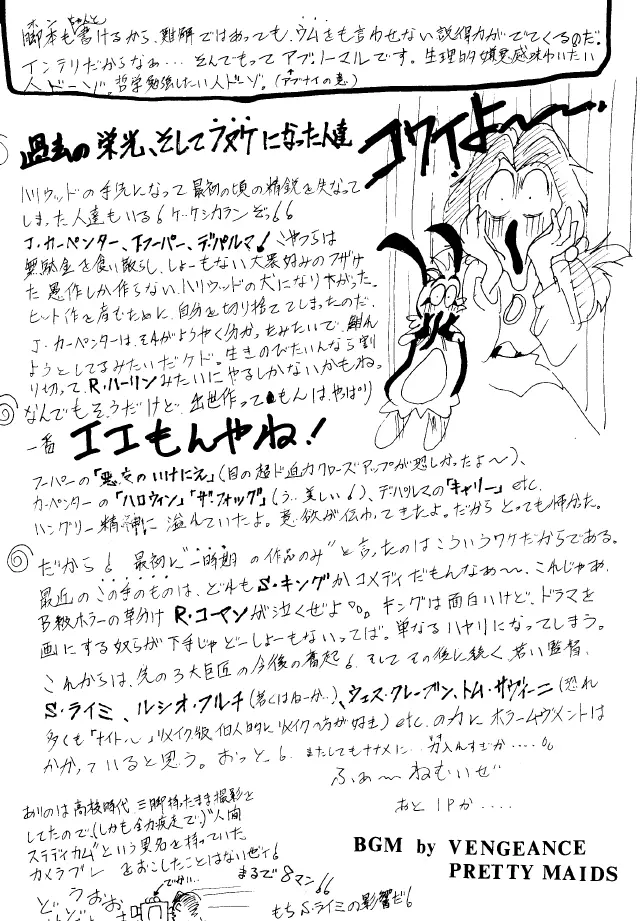 ホン ちゃんと
脚本も書けるから、難解ではあっても、ウムをも言わせない説得力がでてくるのだ。
インテリだからなぁ… そんでもってアブノーマルです。生理的嫌悪感味わいたい
人ドーゾ。哲学勉強したい人ドーゾ。(アブナイの意)
過去の栄光、そしてフヌケになった人達
コワイよ〜〜
ハリウッドの手先になって最初の頃の精鋭を失なって
しまった人達もいる!ケッケシカランぞっ!!
J・カーペンター、T・フーパー、デパルマ! こやつらは
無駄金を食い散らし、しょーもない大衆好みのフザけ
た悪作しか作らない、ハリウッドの犬になり下がった。
ヒット作を産むために、自分を切り捨ててしまったのだ。
J・カーペンターは、それがようやく分かったみたいで、
ようとしてるみたいだケド。生きのびたいんなら割
り切って R・ハーリンみたいにやるしかないかもねっ
なんでもそうだけど、出世作ってもんは、やっぱり
一番 エエもんやね!
フーパーの「悪女のいけにえ」(目の超ド迫力クローズアップが恐しかったよ〜)、
カーペンターの「ハロウィン」「ザ・フォッグ」(う…美しい!)、デパルマの「キャリー」etc.
ハングリー精神に溢れていたよ。意欲が伝わってきたよ。だからとっても好きだった。
だから! 最初に"一時期の作品のみ"と言ったのはこういうワケだからである。
最近のこの手のものは、どれもS・キングかコメディだもんなぁ〜、これじゃあ、
B級ホラーの草分け R・コーマンが泣くぜよ。キングは面白いけど、ドラマを
画にする奴らが下手じゃどーしょーもないってば。単なるハヤリになってしまう。
これからは、先の3大巨匠の今後の奮起!そしてその後に続く、若い監督、
S・ライミ、ルシオ・フルチ(若くはねーか…)、ウェス・クレーブン、トム・サヴィーニ(恐れ
多くも「ナイト・〜」リメイク版 個人的にリメイクの方が好き) etc.の力にホラームーヴメントは
かかっていると思う。おっと! またしてもナナメに… 力入れすぎか……。
ふぁ〜ねむいぜ
あと1Pか……
ありのは高校時代、三脚持ったまま撮影を
してたので、(しかも全力疾走で)"人間
ステディカム"という異名を持っていた。
カメラブレ をおこしたことはないぜィ!
まるで8マン!!
どうおお
もち S・ライミの影響だ!
BGM by VENGEANCE
PRETTY MAIDS